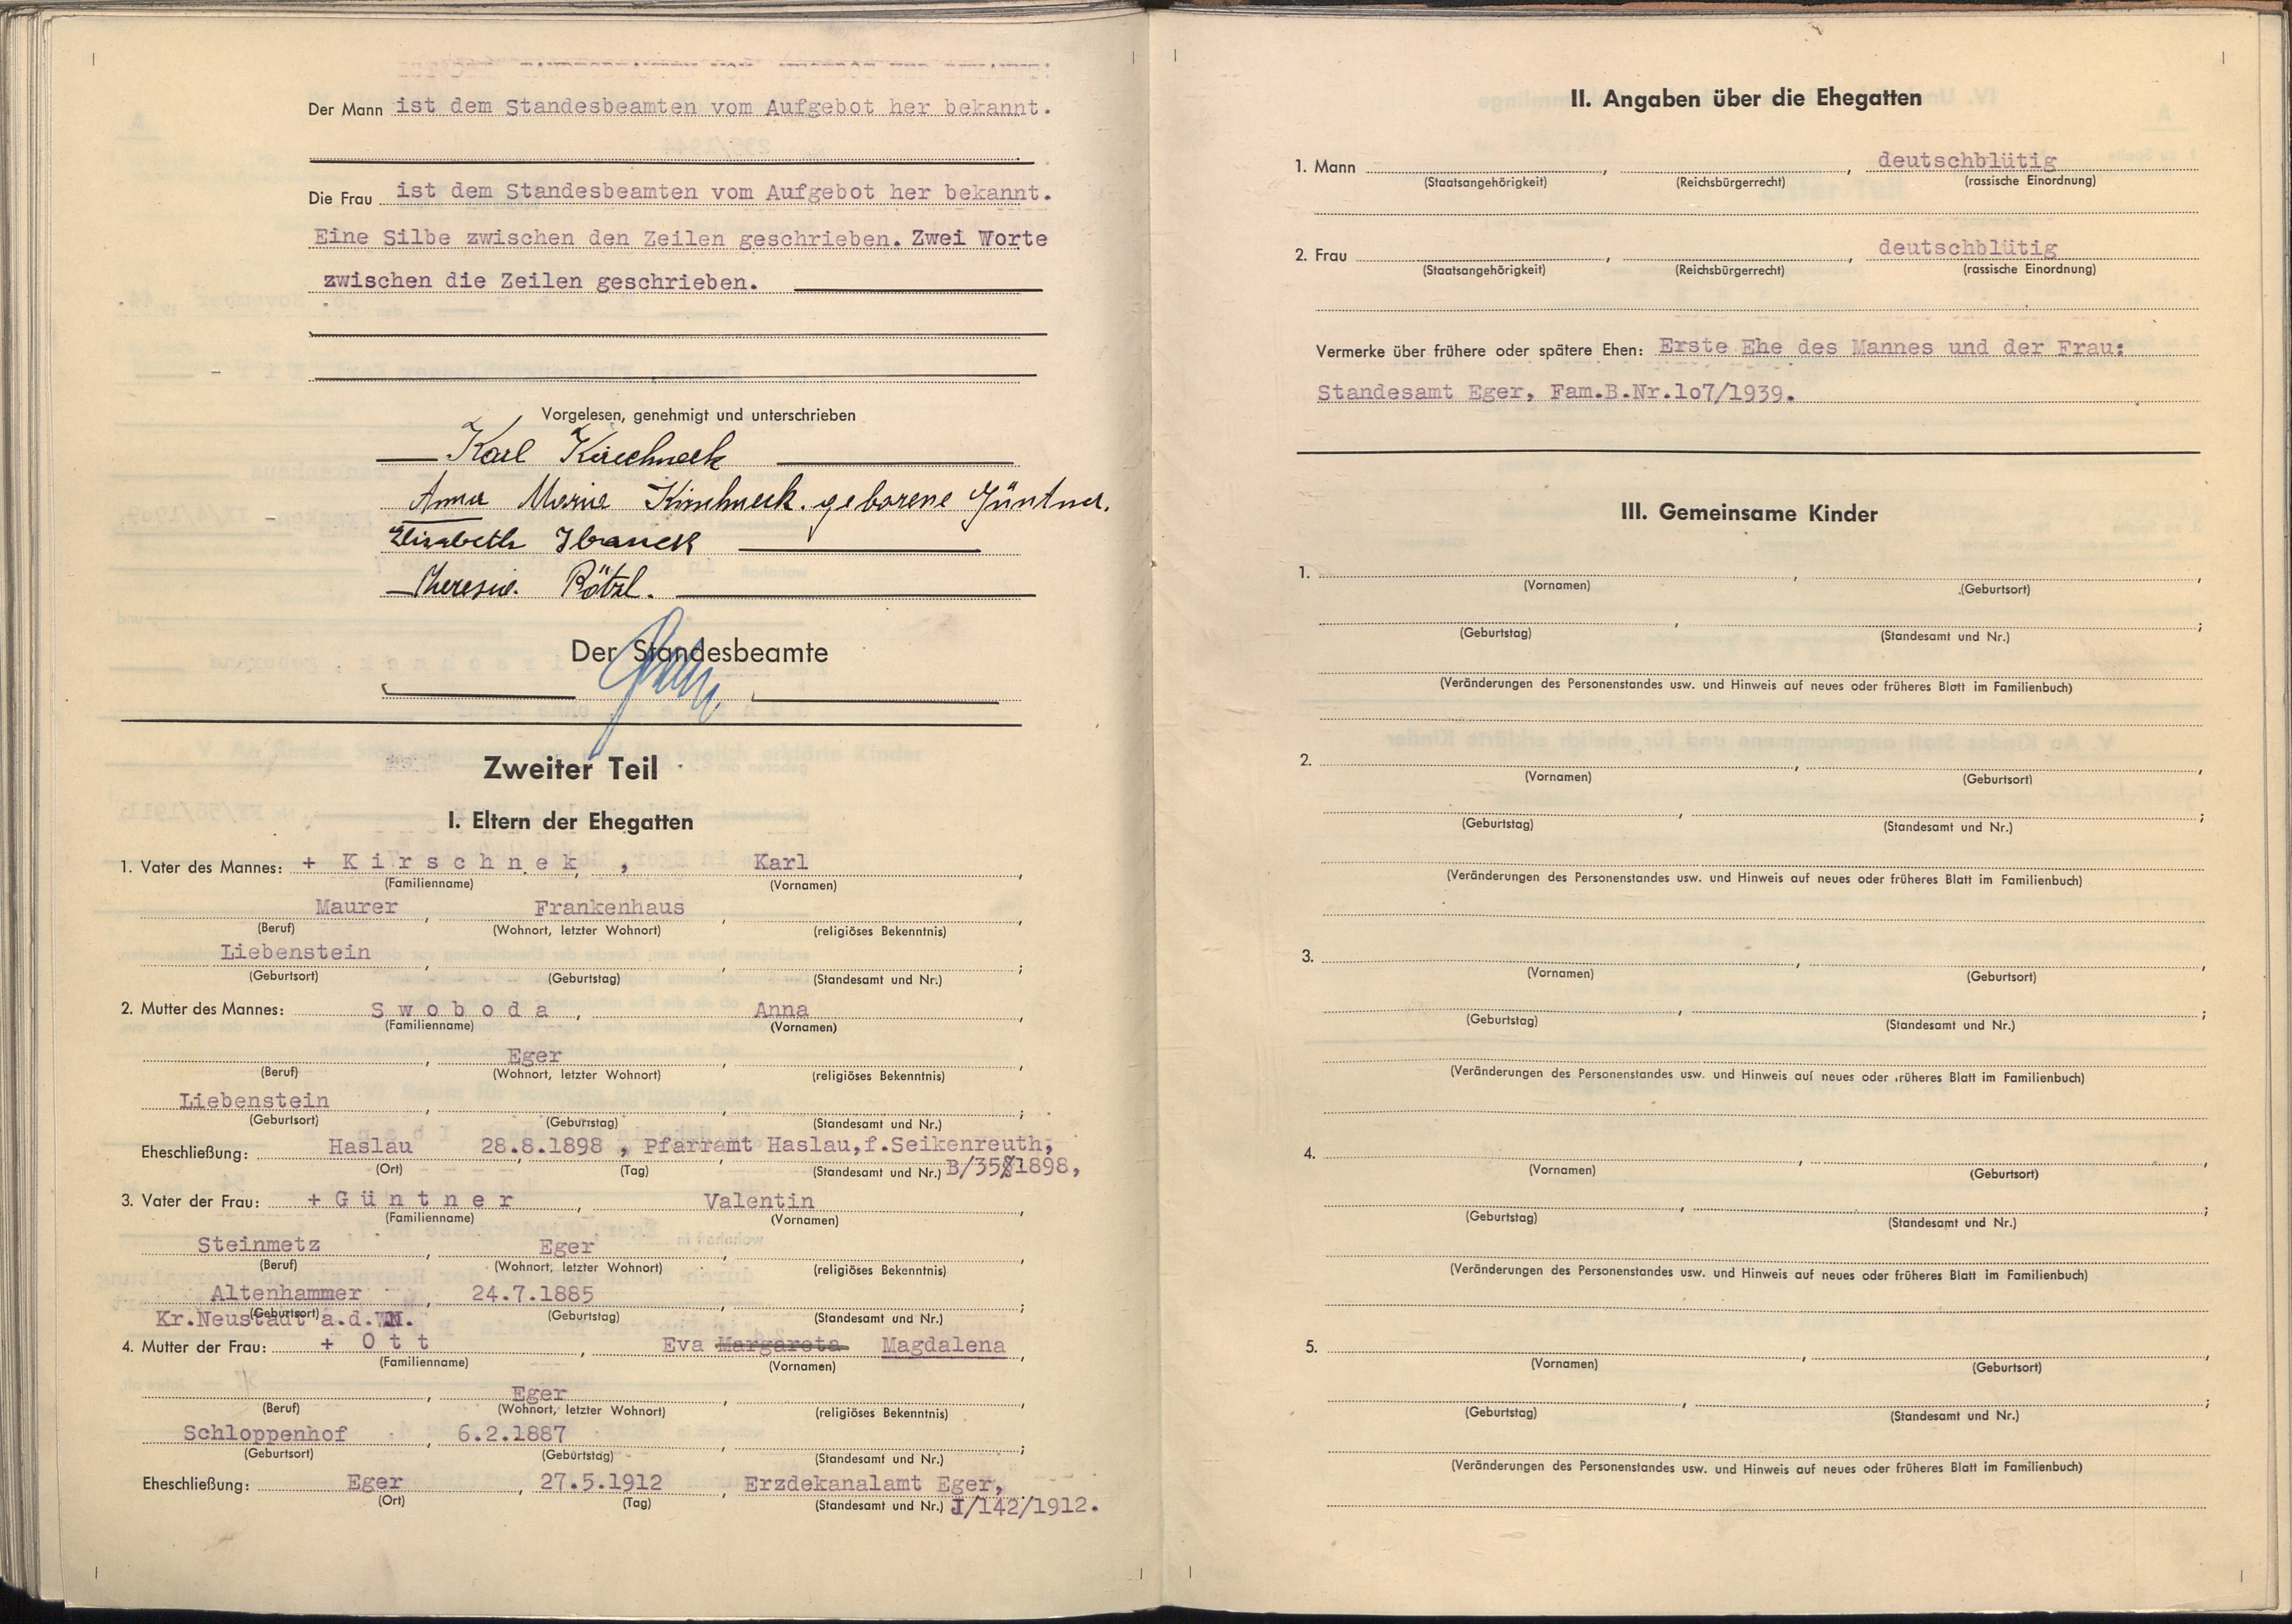 Der Mann ist dem Standesbeamten vom Aufgebot her bekannt.
Die Frau ist dem Standesbeamten vom Aufgebot her bekannt.
Eine Silbe zwischen den Zeilen geschrieben. Zwei Worte
zwischen die Zeilen geschrieben.
Vorgelesen, genehmigt und unterschrieben
Karl Kirschneck
Anna Marie Kirschneck. geborene Güntner.
Elisabeth Ibanek
Theresie Rötzl.
Der Standesbeamte
Zweiter Teil
I. Eltern der Ehegatten
1. Vater des Mannes: + K i r s c h n e k , Karl ,
(Familienname) (Vornamen)
Maurer , Frankenhaus , ,
(Beruf) (Wohnort, letzter Wohnort) (religiöses Bekenntnis)
Liebenstein , , ;
(Geburtsort) (Geburtstag) (Standesamt und Nr.)
2. Mutter des Mannes: S w o b o d a , Anna ,
(Familienname) (Vornamen)
, Eger , ,
(Beruf) (Wohnort, letzter Wohnort) (religiöses Bekenntnis)
Liebenstein , , ;
(Geburtsort) (Geburtstag) (Standesamt und Nr.)
Eheschließung: Haslau , 28.8.1898 , Pfarramt Haslau,f.Seikenreuth,
(Ort) (Tag) (Standesamt und Nr.) B/35/1898,
3. Vater der Frau: + G ü n t n e r , Valentin ,
(Familienname) (Vornamen)
Steinmetz , Eger , ,
(Beruf) (Wohnort, letzter Wohnort) (religiöses Bekenntnis)
Altenhammer , 24.7.1885 , ;
(Geburtsort) (Geburtstag) (Standesamt und Nr.)
Kr.Neustadt a.d.WN.
4. Mutter der Frau: + O t t , Eva Margareta Magdalena ,
(Familienname) (Vornamen)
, Eger , ,
(Beruf) (Wohnort, letzter Wohnort) (religiöses Bekenntnis)
Schloppenhof , 6.2.1887 , ;
(Geburtsort) (Geburtstag) (Standesamt und Nr.)
Eheschließung: Eger , 27.5.1912 , Erzdekanalamt Eger,
(Ort) (Tag) (Standesamt und Nr.) J/142/1912.
II. Angaben über die Ehegatten
1. Mann , , deutschblütig
(Staatsangehörigkeit) (Reichsbürgerrecht) (rassische Einordnung)
2. Frau , , deutschblütig
(Staatsangehörigkeit) (Reichsbürgerrecht) (rassische Einordnung)
Vermerke über frühere oder spätere Ehen: Erste Ehe des Mannes und der Frau:
Standesamt Eger, Fam.B.Nr.1o7/1939.
III. Gemeinsame Kinder
1. , ,
(Vornamen) (Geburtsort)
, ;
(Geburtstag) (Standesamt und Nr.)
(Veränderungen des Personenstandes usw. und Hinweis auf neues oder früheres Blatt im Familienbuch)
2. , ,
(Vornamen) (Geburtsort)
, ;
(Geburtstag) (Standesamt und Nr.)
(Veränderungen des Personenstandes usw. und Hinweis auf neues oder früheres Blatt im Familienbuch)
3. , ,
(Vornamen) (Geburtsort)
, ;
(Geburtstag) (Standesamt und Nr.)
(Veränderungen des Personenstandes usw. und Hinweis auf neues oder früheres Blatt im Familienbuch)
4. , ,
(Vornamen) (Geburtsort)
, ;
(Geburtstag) (Standesamt und Nr.)
(Veränderungen des Personenstandes usw. und Hinweis auf neues oder früheres Blatt im Familienbuch)
5. , ,
(Vornamen) (Geburtsort)
, ;
(Geburtstag) (Standesamt und Nr.)
(Veränderungen des Personenstandes usw. und Hinweis auf neues oder früheres Blatt im Familienbuch)